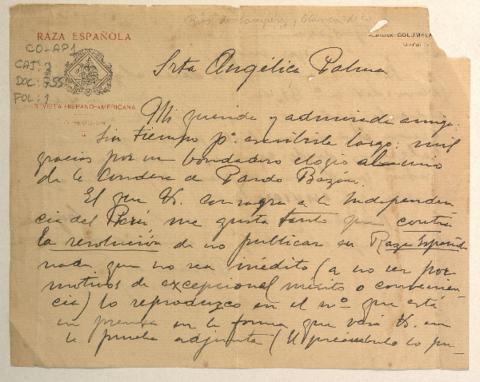 Ríos de Lampérez, Blanca de los
RAZA ESPAÑOLA
COLAP1
CAJ: 2
DOC: 755
FOL: 1
REVISTA HISPANO-AMERICANA
Srta Angélica Palma
Mi querida y admirada amiga:
Sin tiempo pª escribirle largo: mil
gracias por su bondadoso elogio al mio
de la Condesa de Pardo Bazán.
El que V. consagra a la Independen
cia del Perú me gusta tanto que contra
la resolución de no publicar en Raza Española
nada que no sea inédito (a no ser por
motivos de excepcional mérito o convenien
cia) lo reproduzco en el nº que está
en prensa en la forma que verá V. en
la prueba adjunta (El preámbulo lo pu-